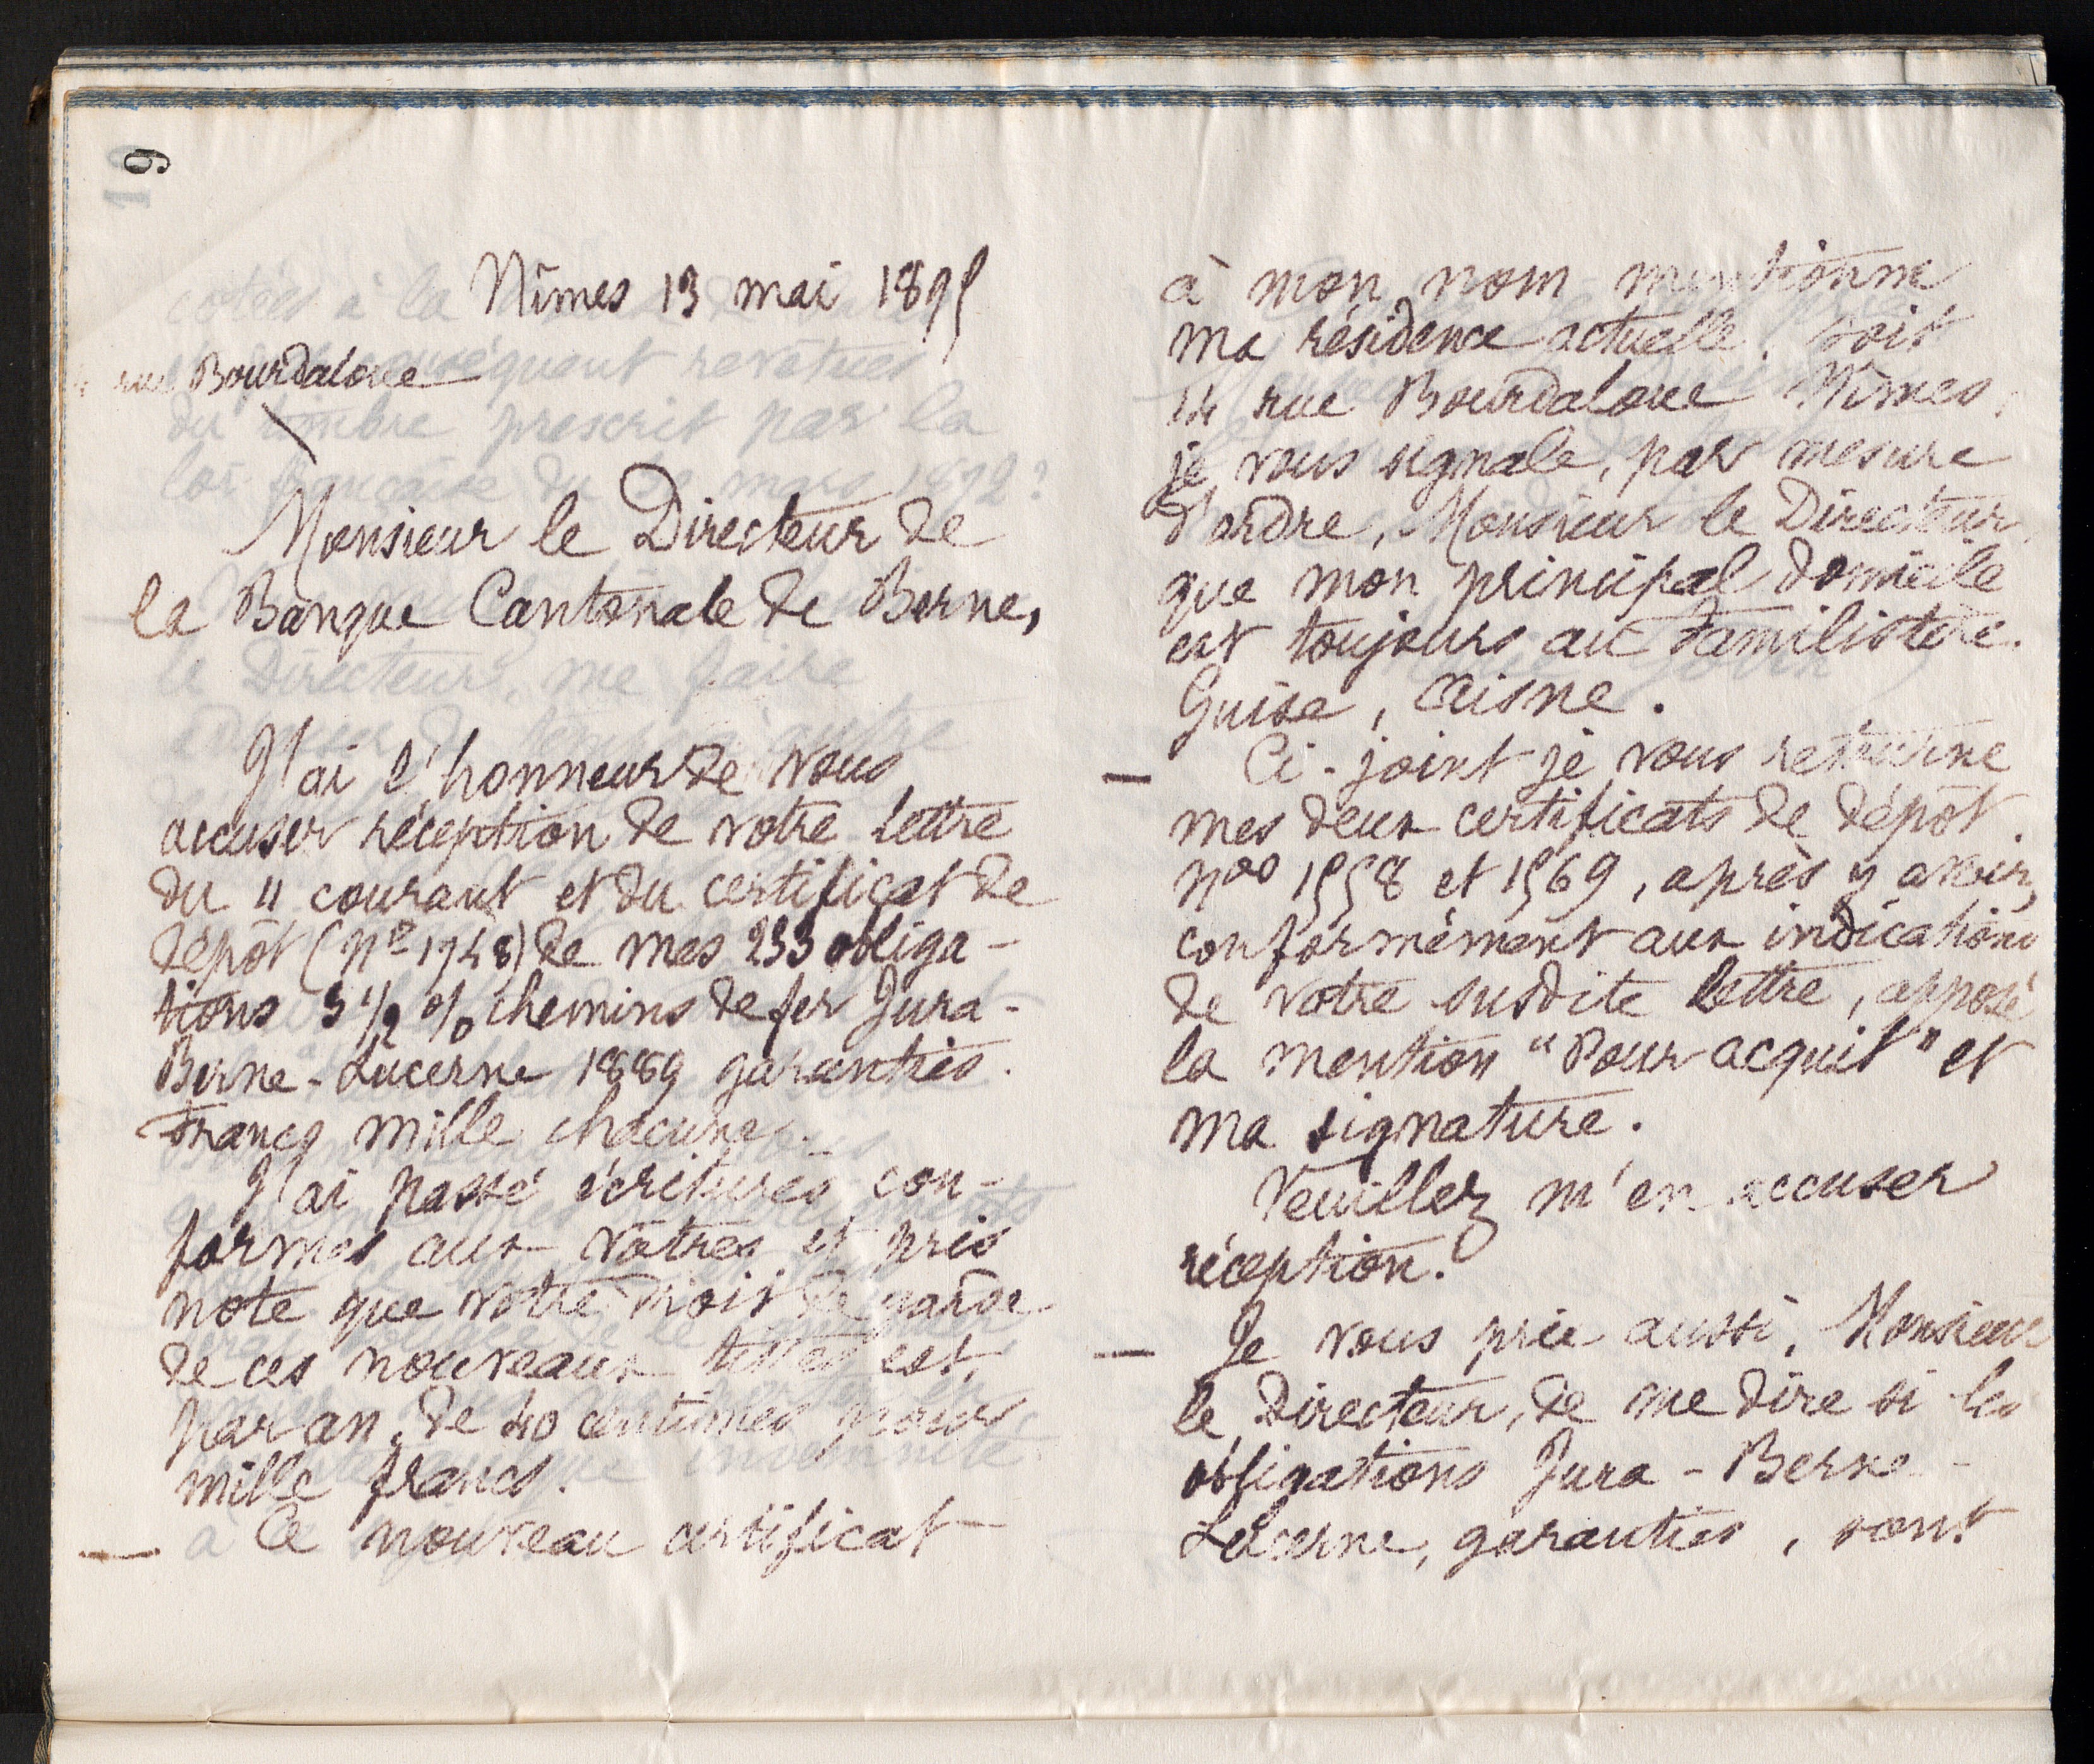 9
Nîmes 13 mai 1895
rue Bourdaloue
Monsieur le Directeur de
la Banque Cantonale de Berne,
J'ai l'honneur de vous
accuser réception de votre lettre
du 11 courant et du certificat de
dépôt (nº 1748) de mes 233 obliga-
tions 3 1/2 % chemins de fer Jura-
Berne-Lucerne 1889 garanties.
francs mille chacune.
J'ai passé écritures con-
formes aux vôtres et pris
note que votre droit de garde
de ces nouveaux titres est,
par an, de 40 centimes pour
mille francs.
— Ce nouveau certificat
à mon nom mentionne
ma résidence actuelle, soit
14 rue Bourdaloue Nîmes,
je vous signale, par mesure
d'ordre, Monsieur le Directeur,
que mon principal domicile
est toujours au Familistère.
Guise, Aisne.
— Ci-joint je vous retourne
mes deux certificats de dépôt.
nos 1558 et 1569, après y avoir,
conformément aux indications
de votre susdite lettre, apposé
la mention "Pour acquit" et
ma signature.
Veuillez m'en accuser
réception.
— Je vous prie aussi, Monsieur
le Directeur, de me dire si les
obligations Jura-Berne-
Lucerne, garanties, sont